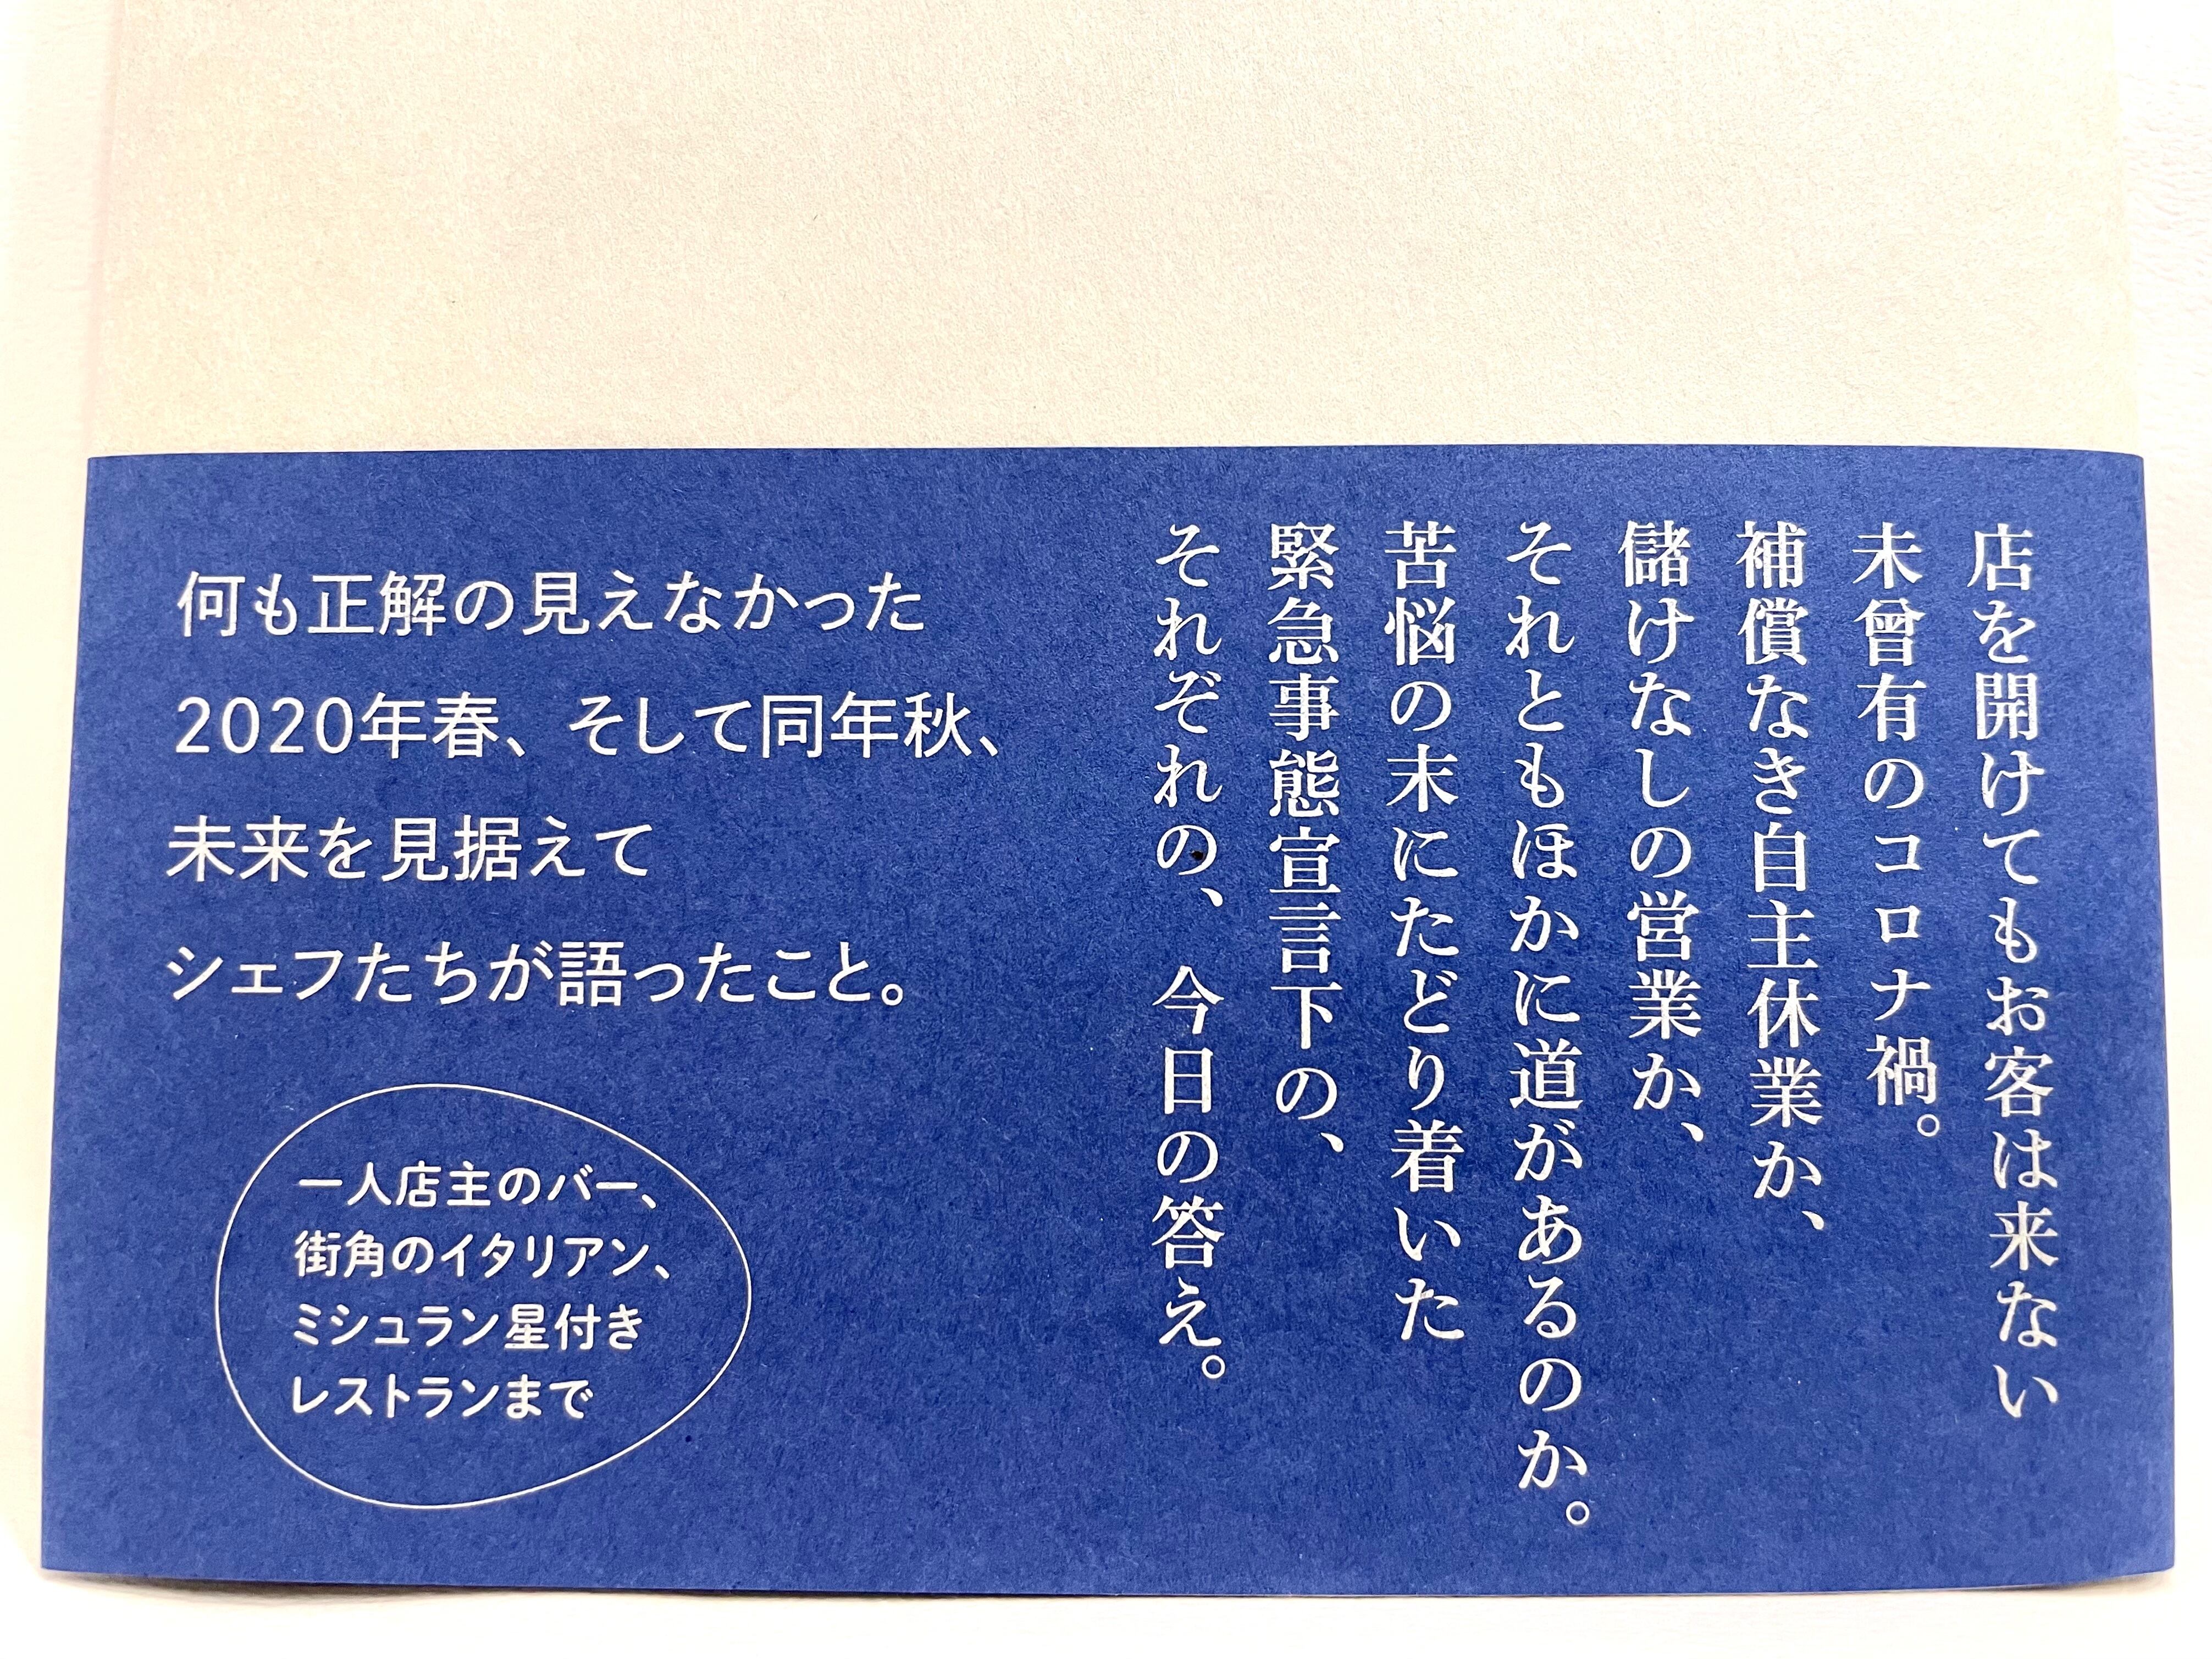 店を開けてもお客は来ない
未曾有のコロナ禍。
補償なき自主休業か、
儲けなしの営業か、
それともほかに道があるのか。
苦悩の末にたどり着いた
緊急事態宣言下の、
それぞれの、今日の答え。
何も正解の見えなかった
2020年春、そして同年秋、
未来を見据えて
シェフたちが語ったこと。
一人店主のバー、
街角のイタリアン、
ミシュラン星付き
レストランまで